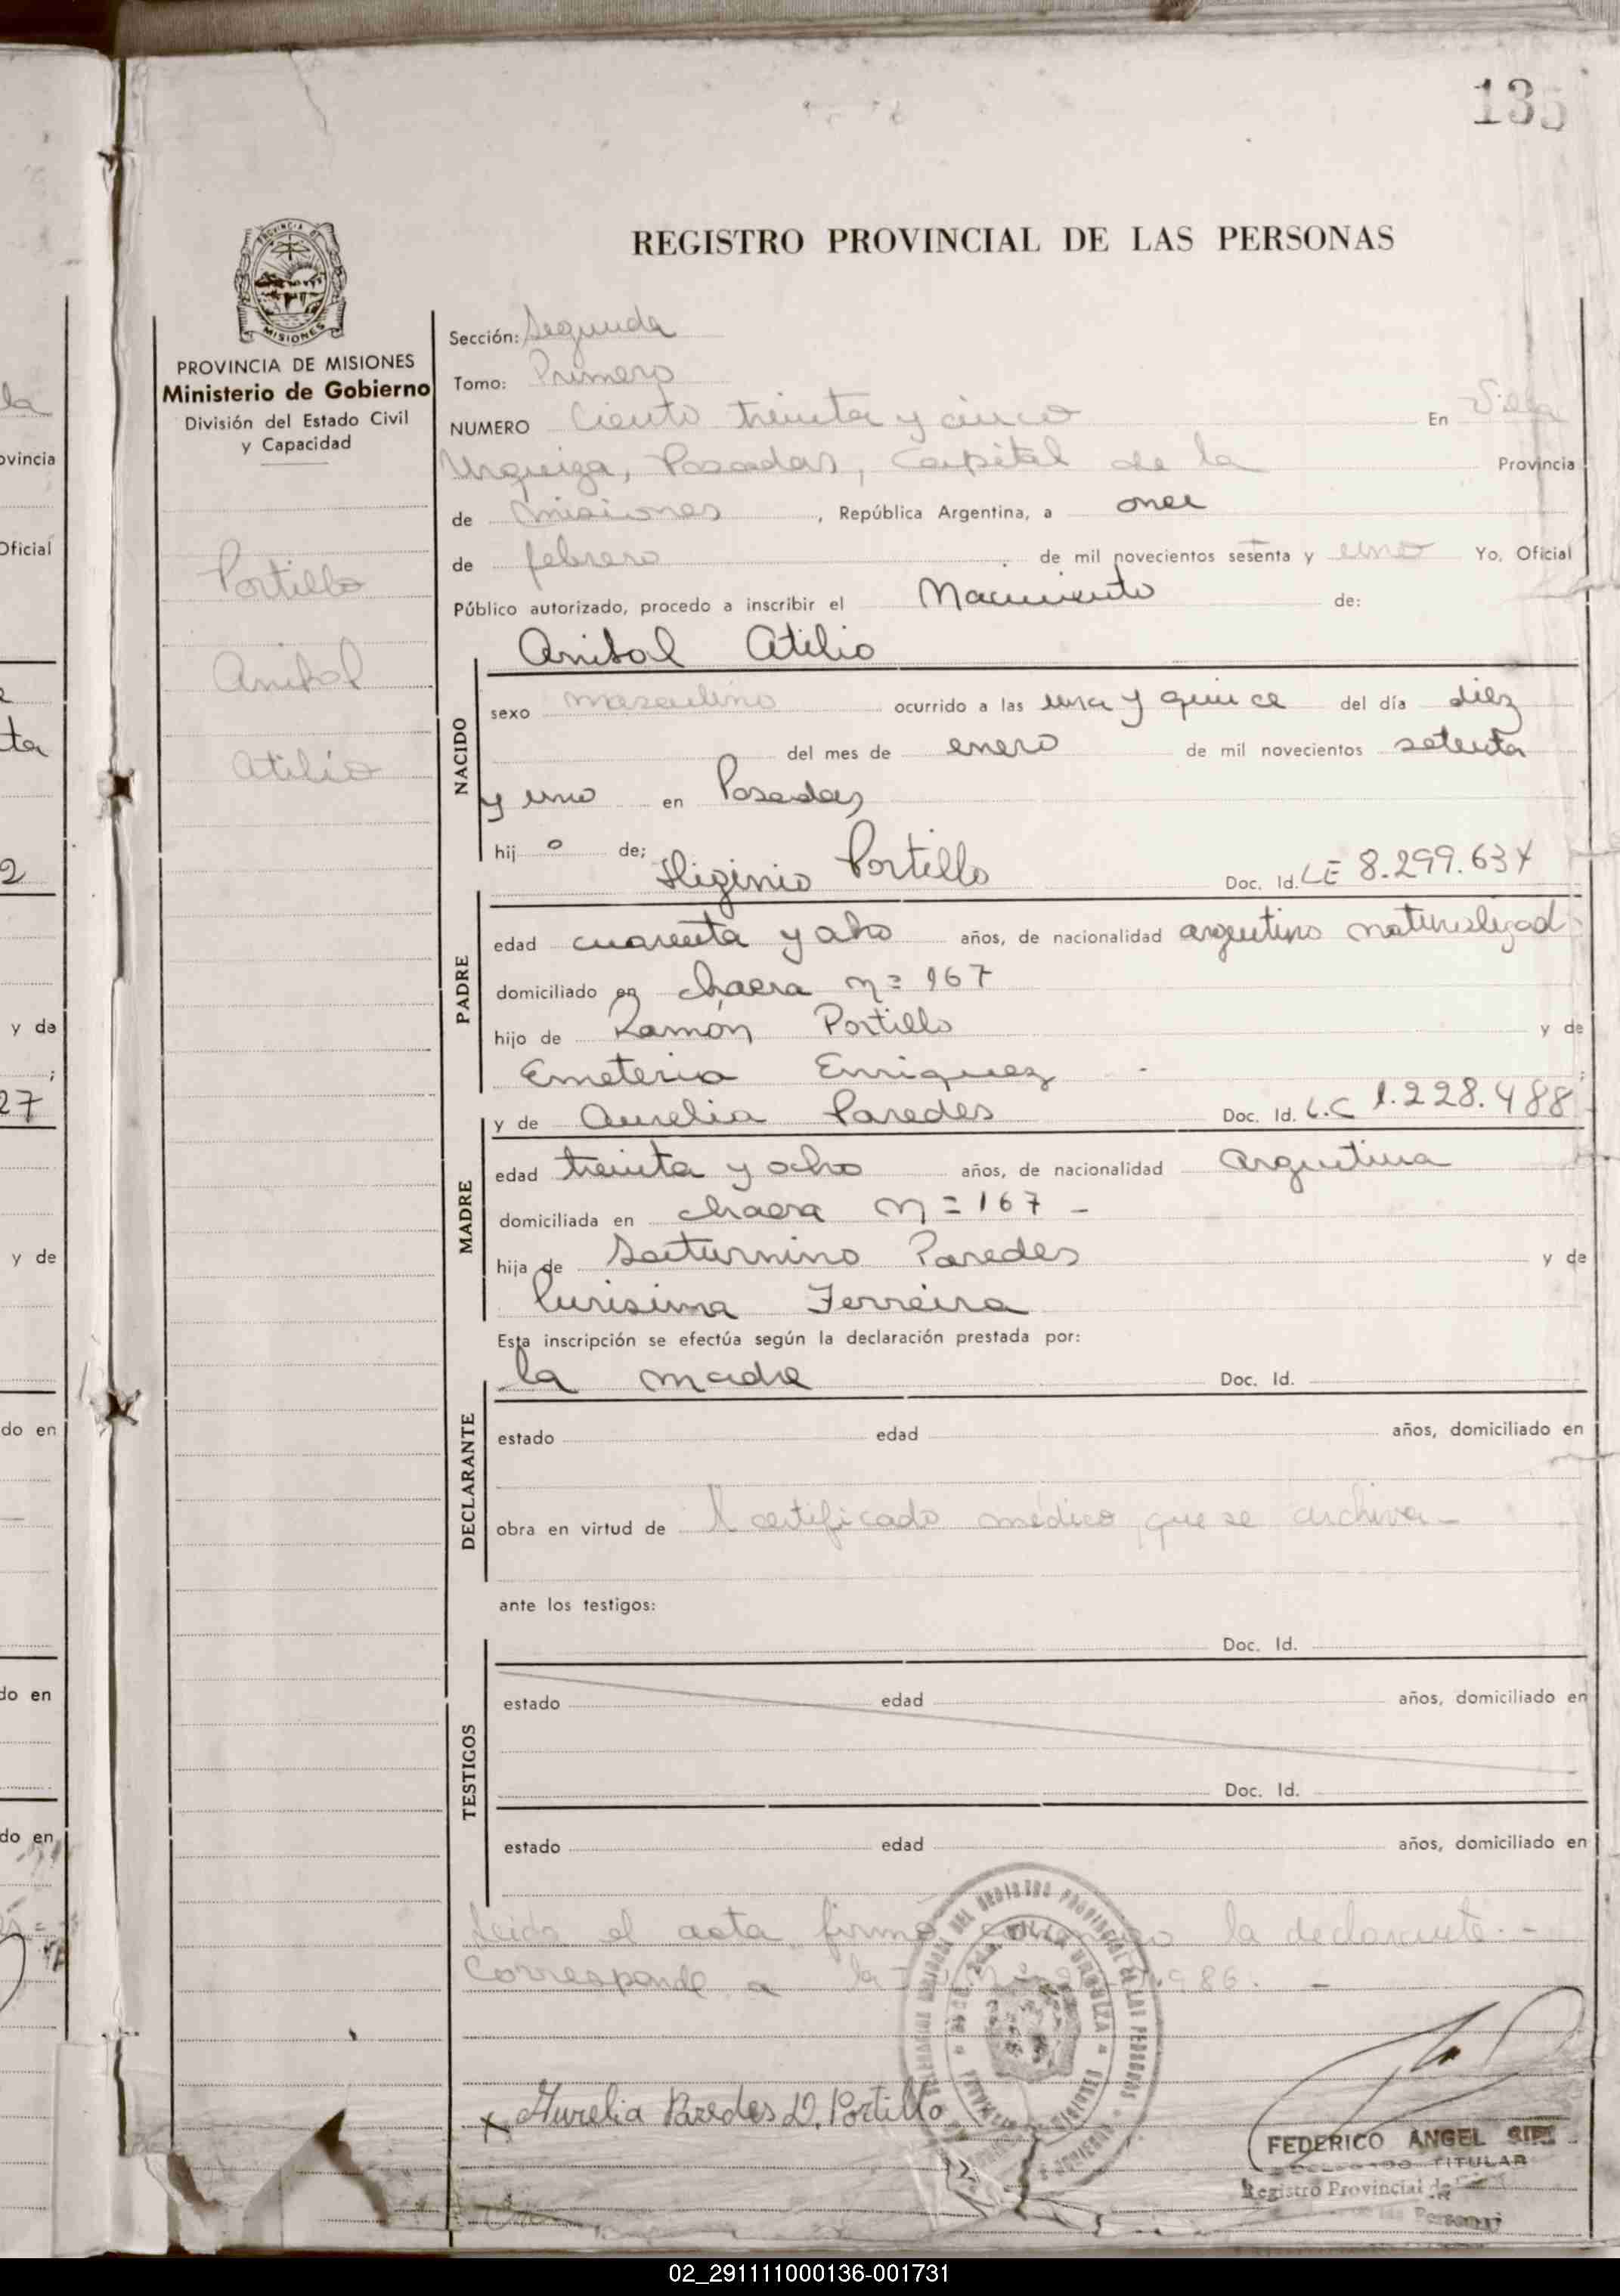 135
REGISTRO PROVINCIAL DE LAS PERSONAS
MISIONES
PROVINCIA DE MISIONES
Ministerio de Gobierno
División del Estado Civil
y Capacidad
Portillo
Anibal
Atilio
Sección: Segunda
Tomo: Primero
NUMERO Ciento treinta y cinco En Villa
Urquiza, Posadas, Capital de la Provincia
de Misiones , República Argentina, a once
de febrero de mil novecientos sesenta y uno Yo, Oficial
Público autorizado, procedo a inscribir el Nacimiento de:
Anibal Atilio
NACIDO
sexo masculino ocurrido a las una y quince del día diez
del mes de enero de mil novecientos setenta
y uno en Posadas
hij o de; Higinio Portillo Doc. Id. LE 8.299.634
PADRE
edad cuarenta y ocho años, de nacionalidad argentino naturalizad
domiciliado en chacra n= 167
hijo de Ramón Portillo y de
Emeteria Enriquez ;
MADRE
y de Aurelia Paredes Doc. Id. L.C 1.228.488
edad treinta y ocho años, de nacionalidad argentina
domiciliada en chacra n= 167 -
hija de Saturnino Paredes y de
Purisima Ferreira
Esta inscripción se efectúa según la declaración prestada por:
la madre Doc. Id.
DECLARANTE
estado edad años, domiciliado en
obra en virtud de certificado médico que se archiva -
ante los testigos:
Doc. Id.
TESTIGOS
estado edad años, domiciliado en
Doc. Id.
estado edad años, domiciliado en
Leida el acta firma conmigo la declarante. -
Corresponde a la 986. -
VILLA URQUIZA
x Aurelia Paredes D. Portillo
FEDERICO ANGEL
DELEGADO TITULAR
Registro Provincial de
las Personas
02_291111000136-001731